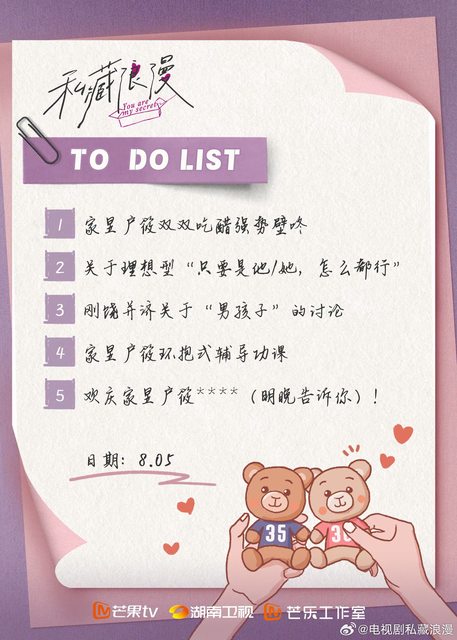 私藏浪漫
You are
my secret
TO DO LIST
1 家昱户筱双双吃醋强势壁咚
2 关于理想型“只要是他/她，怎么都行”
3 刚饶并济关于“男孩子”的讨论
4 家昱户筱环抱式辅导功课
5 欢庆家昱户筱****（明晚告诉你）！
日期：8.05
35 3
芒果tv 湖南卫视 芒乐工作室
@电视剧私藏浪漫